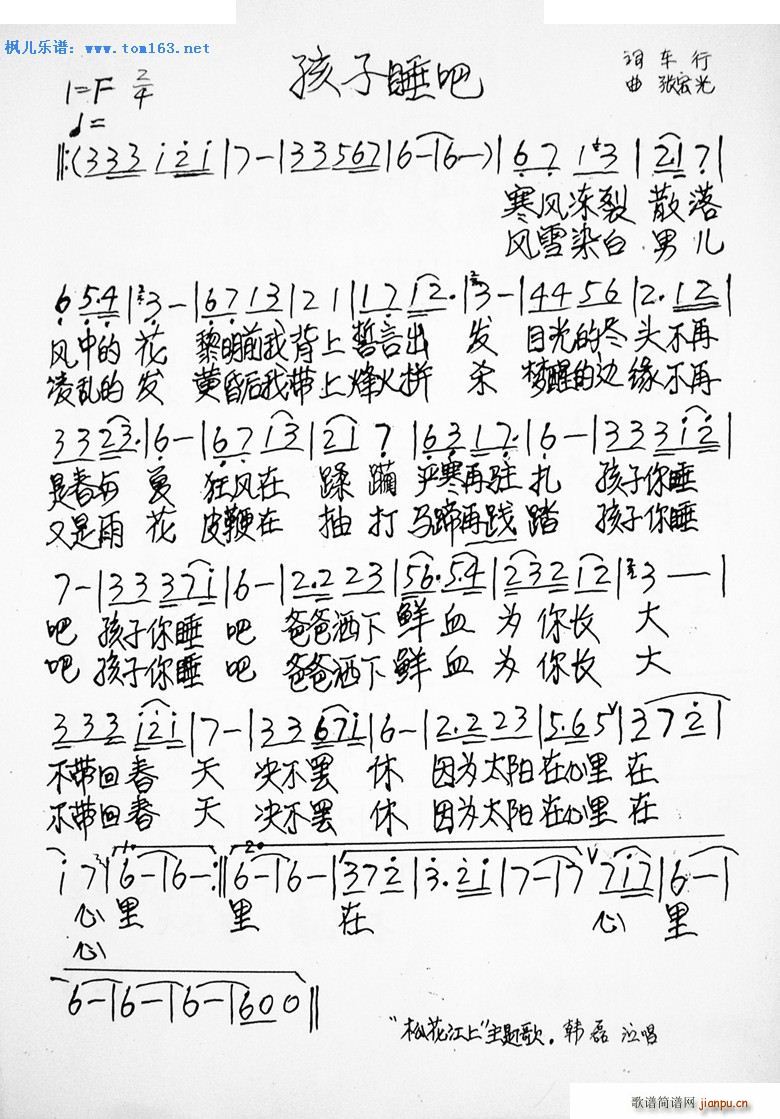 枫儿乐谱：www.tom163.net
孩子睡吧
词 车 行
曲 张宏光
1=F 2/4
♩=
‖:(333 i2i|7-|33567|6-|6-)|67 13|2·17|
寒风冻裂 散落
风雪染白 男儿
65·4|3-|67 13|2 1|17 12·|3-|44 56|2·12|
风中的 花 黎明前我 背上 誓言出 发 目光的尽头不再
凌乱的 发 黄昏后我 带上 烽火拼 杀 梦醒的边缘不再
3323·|6-|67 i3|2i 7|6317·|6-|333i2|
是春与 夏 狂风在 蹂躏 严寒再驻 扎 孩子你睡
又是雨 花 皮鞭在 抽打 马蹄再践 踏 孩子你睡
7-|3337i|6-|2·2 23|56·5·4|232 12|3--|
吧 孩子你睡 吧 爸爸洒下 鲜血 为你长 大
吧 孩子你睡 吧 爸爸洒下 鲜血 为你长 大
333 i2i|7-|3367i|6-|2·2 23|5·65|372|
不带回春 天 决不罢 休 因为太阳在心里 在
不带回春 天 决不罢 休 因为太阳在心里 在
i7|6-|6-:‖6-|6-|372|3·2i|7-|7 7i7|6-|
心 里 里 在 心 里
心
6-|6-|6-|600‖
"松花江上"主题歌. 韩磊 演唱
歌谱简谱网
jianpu.cn